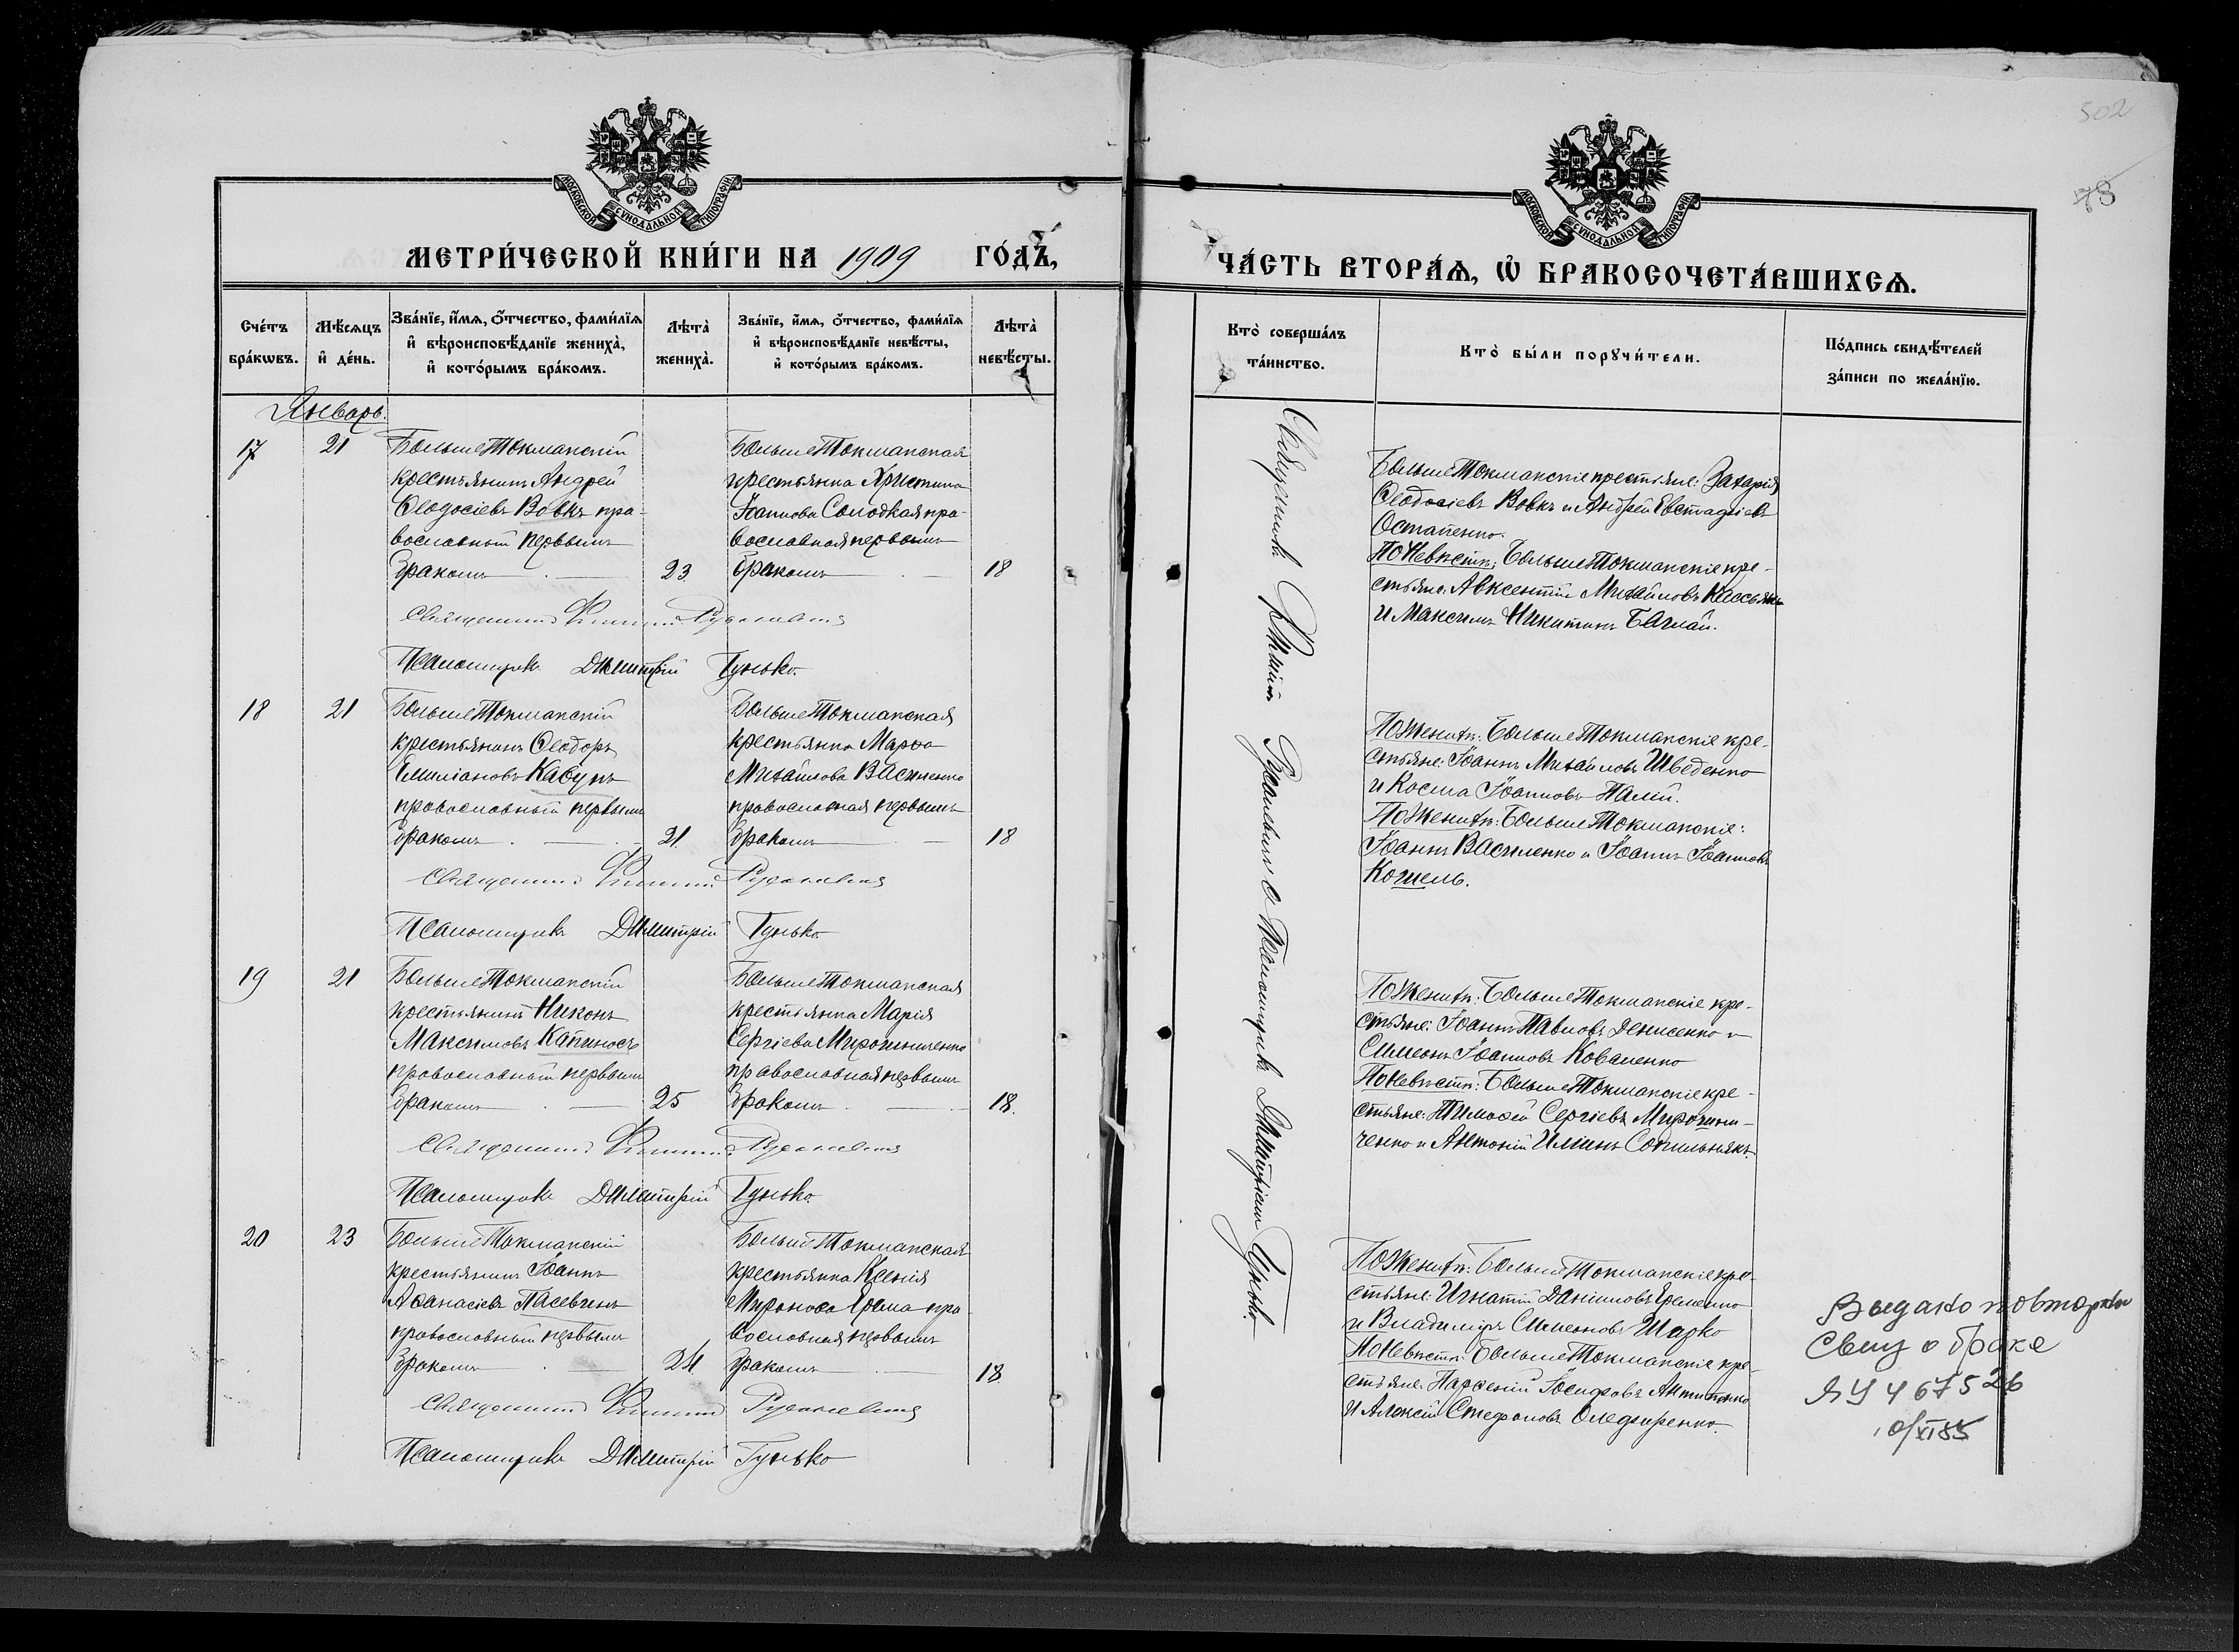 МОСКОВСКОЙ СѴНОДАЛЬНОЙ ТИПОГРАФІИ
МЕТРИ́ЧЕСКОЙ КНИ́ГИ НА 1909 ГО́ДЪ,
Сче́тъ бра́кѡвъ.
Мѣ́сѧцъ и҆ де́нь.
Зва́нїе, и҆́мѧ, ѻ҆́тчество, фами́лїѧ
и҆ вѣроисповѣ́данїе жениха̀,
и҆ кото́рымъ бра́комъ.
Лѣта̀ жениха̀.
Зва́нїе, и҆́мѧ, ѻ҆́тчество, фами́лїѧ
и҆ вѣроисповѣ́данїе невѣ́сты,
и҆ кото́рымъ бра́комъ.
Лѣта̀ невѣ́сты.
Январь.
17 21
БольшеТокмакскій
крестьянинъ Андрей
Ѳеодосіевъ Вовкъ пра-
вославный первымъ
бракомъ 23
БольшеТокмакская
крестьянка Христина
Іоаннова Солодкая пра-
вославная первымъ
бракомъ 18
Священникъ
Псаломщикъ Димитрій Гунько.
18 21
БольшеТокмакскій
крестьянинъ Ѳеодоръ
Емиліановъ Кабунъ
православный первымъ
бракомъ 21
БольшеТокмакская
крестьянка Марѳа
Михайлова Василенко
православная первымъ
бракомъ 18
Священникъ
Псаломщикъ Димитрій Гунько.
19 21
БольшеТокмакскій
крестьянинъ Никонъ
Максимовъ Капиносъ
православный первымъ
бракомъ 25
БольшеТокмакская
крестьянка Марія
Сергіева Мирошниченко
православная первымъ
бракомъ 18.
Священникъ
Псаломщикъ Димитрій Гунько.
20 23
БольшеТокмакскій
крестьянинъ Іоаннъ
Аѳанасіевъ Пасевченъ
православный первымъ
бракомъ 24
БольшеТокмакская
крестьянка Ксенія
Миронова Ярема пра-
вославная первымъ
бракомъ 18
Священникъ
Псаломщикъ Димитрій Гунько
502
78
МОСКОВСКОЙ СѴНОДАЛЬНОЙ ТИПОГРАФІИ
ЧА́СТЬ ВТОРА́Ѧ, Ѡ҆ БРАКОСОЧЕТА́ВШИХСѦ.
Кто̀ соверша́лъ
та́инство.
Кто̀ бы́ли порꙋчи́тели.
По́дпись свидѣ́телей
за́писи по жела́нїю.
Священникъ съ Псаломщикомъ Димитріемъ Гунько.
БольшеТокмакскіе крестьяне: Захарія
Ѳеодосіевъ Вовкъ и Андрей Евстафіевъ
Остапенко.
По Невѣстѣ: БольшеТокмакскіе кре-
стьяне: Авксентій Михайловъ Кассьянъ
и Максимъ Никитинъ Баглай.
По Женихѣ: БольшеТокмакскіе кре-
стьяне: Іоаннъ Михайловъ Шведенко
и Косма Іоанновъ Палій.
По Женихѣ: БольшеТокмакскіе:
Іоаннъ Василенко и Іоаннъ Іоанновъ
Кошель.
По Женихѣ: БольшеТокмакскіе кре-
стьяне: Іоаннъ Павловъ Денисенко и
Симеонъ Іоанновъ Коваленко
По Невѣстѣ: БольшеТокмакскіе кре-
стьяне: Тимоѳей Сергіевъ Мирошни-
ченко и Антоній Ильинъ Сопильнякъ.
По Женихѣ: БольшеТокмакскіе кре-
стьяне: Игнатій Даніиловъ Яременко
и Владиміръ Симеоновъ Шарко
По Невѣстѣ: БольшеТокмакскіе кре-
стьяне: Парѳеній Іосифовъ Антипенко
и Алексій Стефановъ Олефиренко.
Выдано повторно
Свид о браке
ЯУ 467526